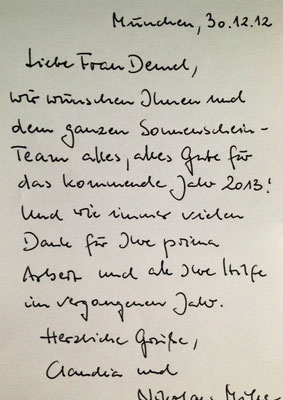 München, 30.12.12
Liebe Frau Demel,
wir wünschen Ihnen und
dem ganzen Sonnenschein-
Team alles, alles Gute für
das kommende Jahr 2013!
Und wie immer vielen
Dank für Ihre prima
Arbeit und all Ihre Hilfe
im vergangenen Jahr.
Herzliche Grüße,
Claudia und
Nikolaus